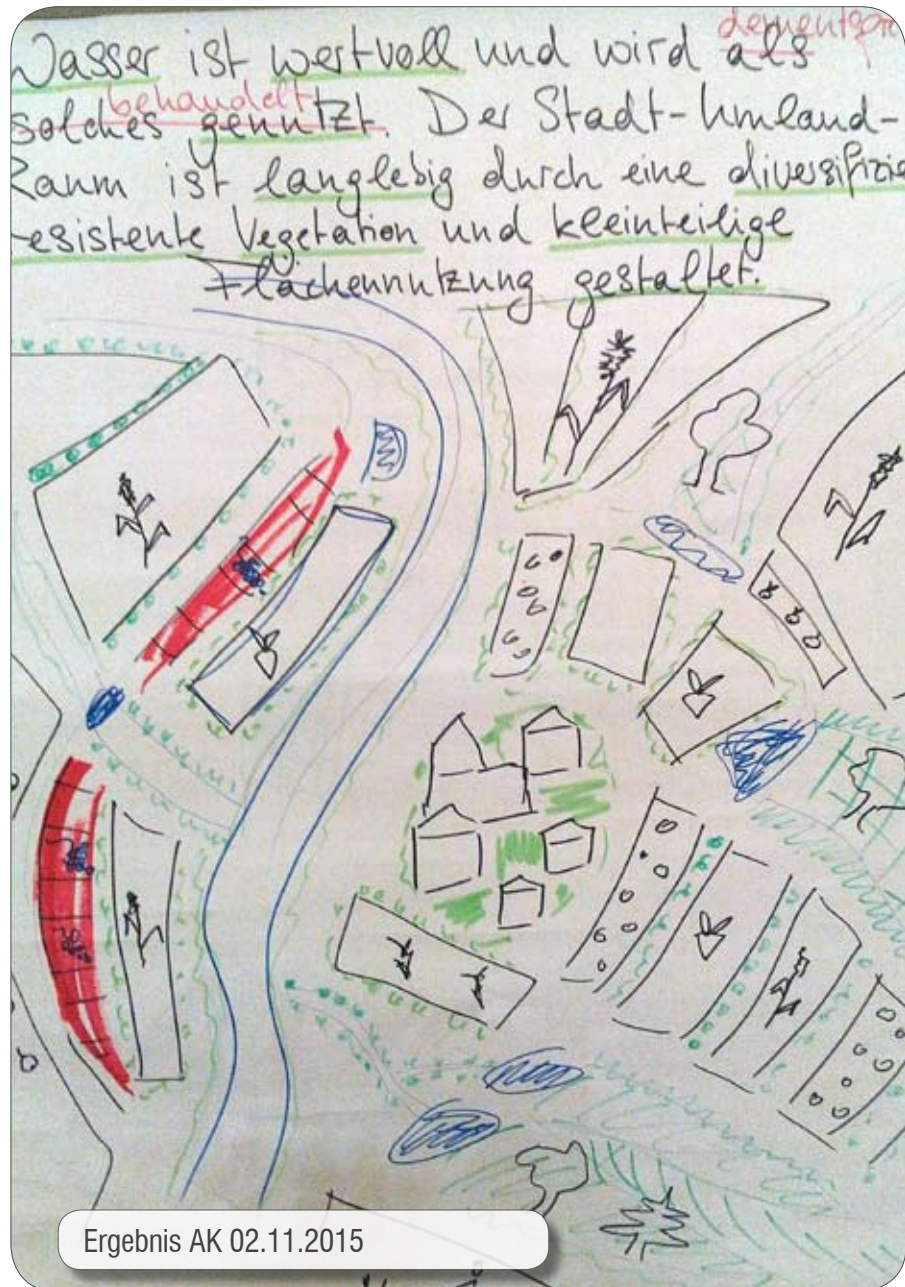 dementspre
Wasser ist wertvoll und wird als
behandelt
solches genutzt. Der Stadt-Umland-
Raum ist langlebig durch eine diversifizie
resistente Vegetation und kleinteilige
Flächennutzung gestaltet.
Ergebnis AK 02.11.2015